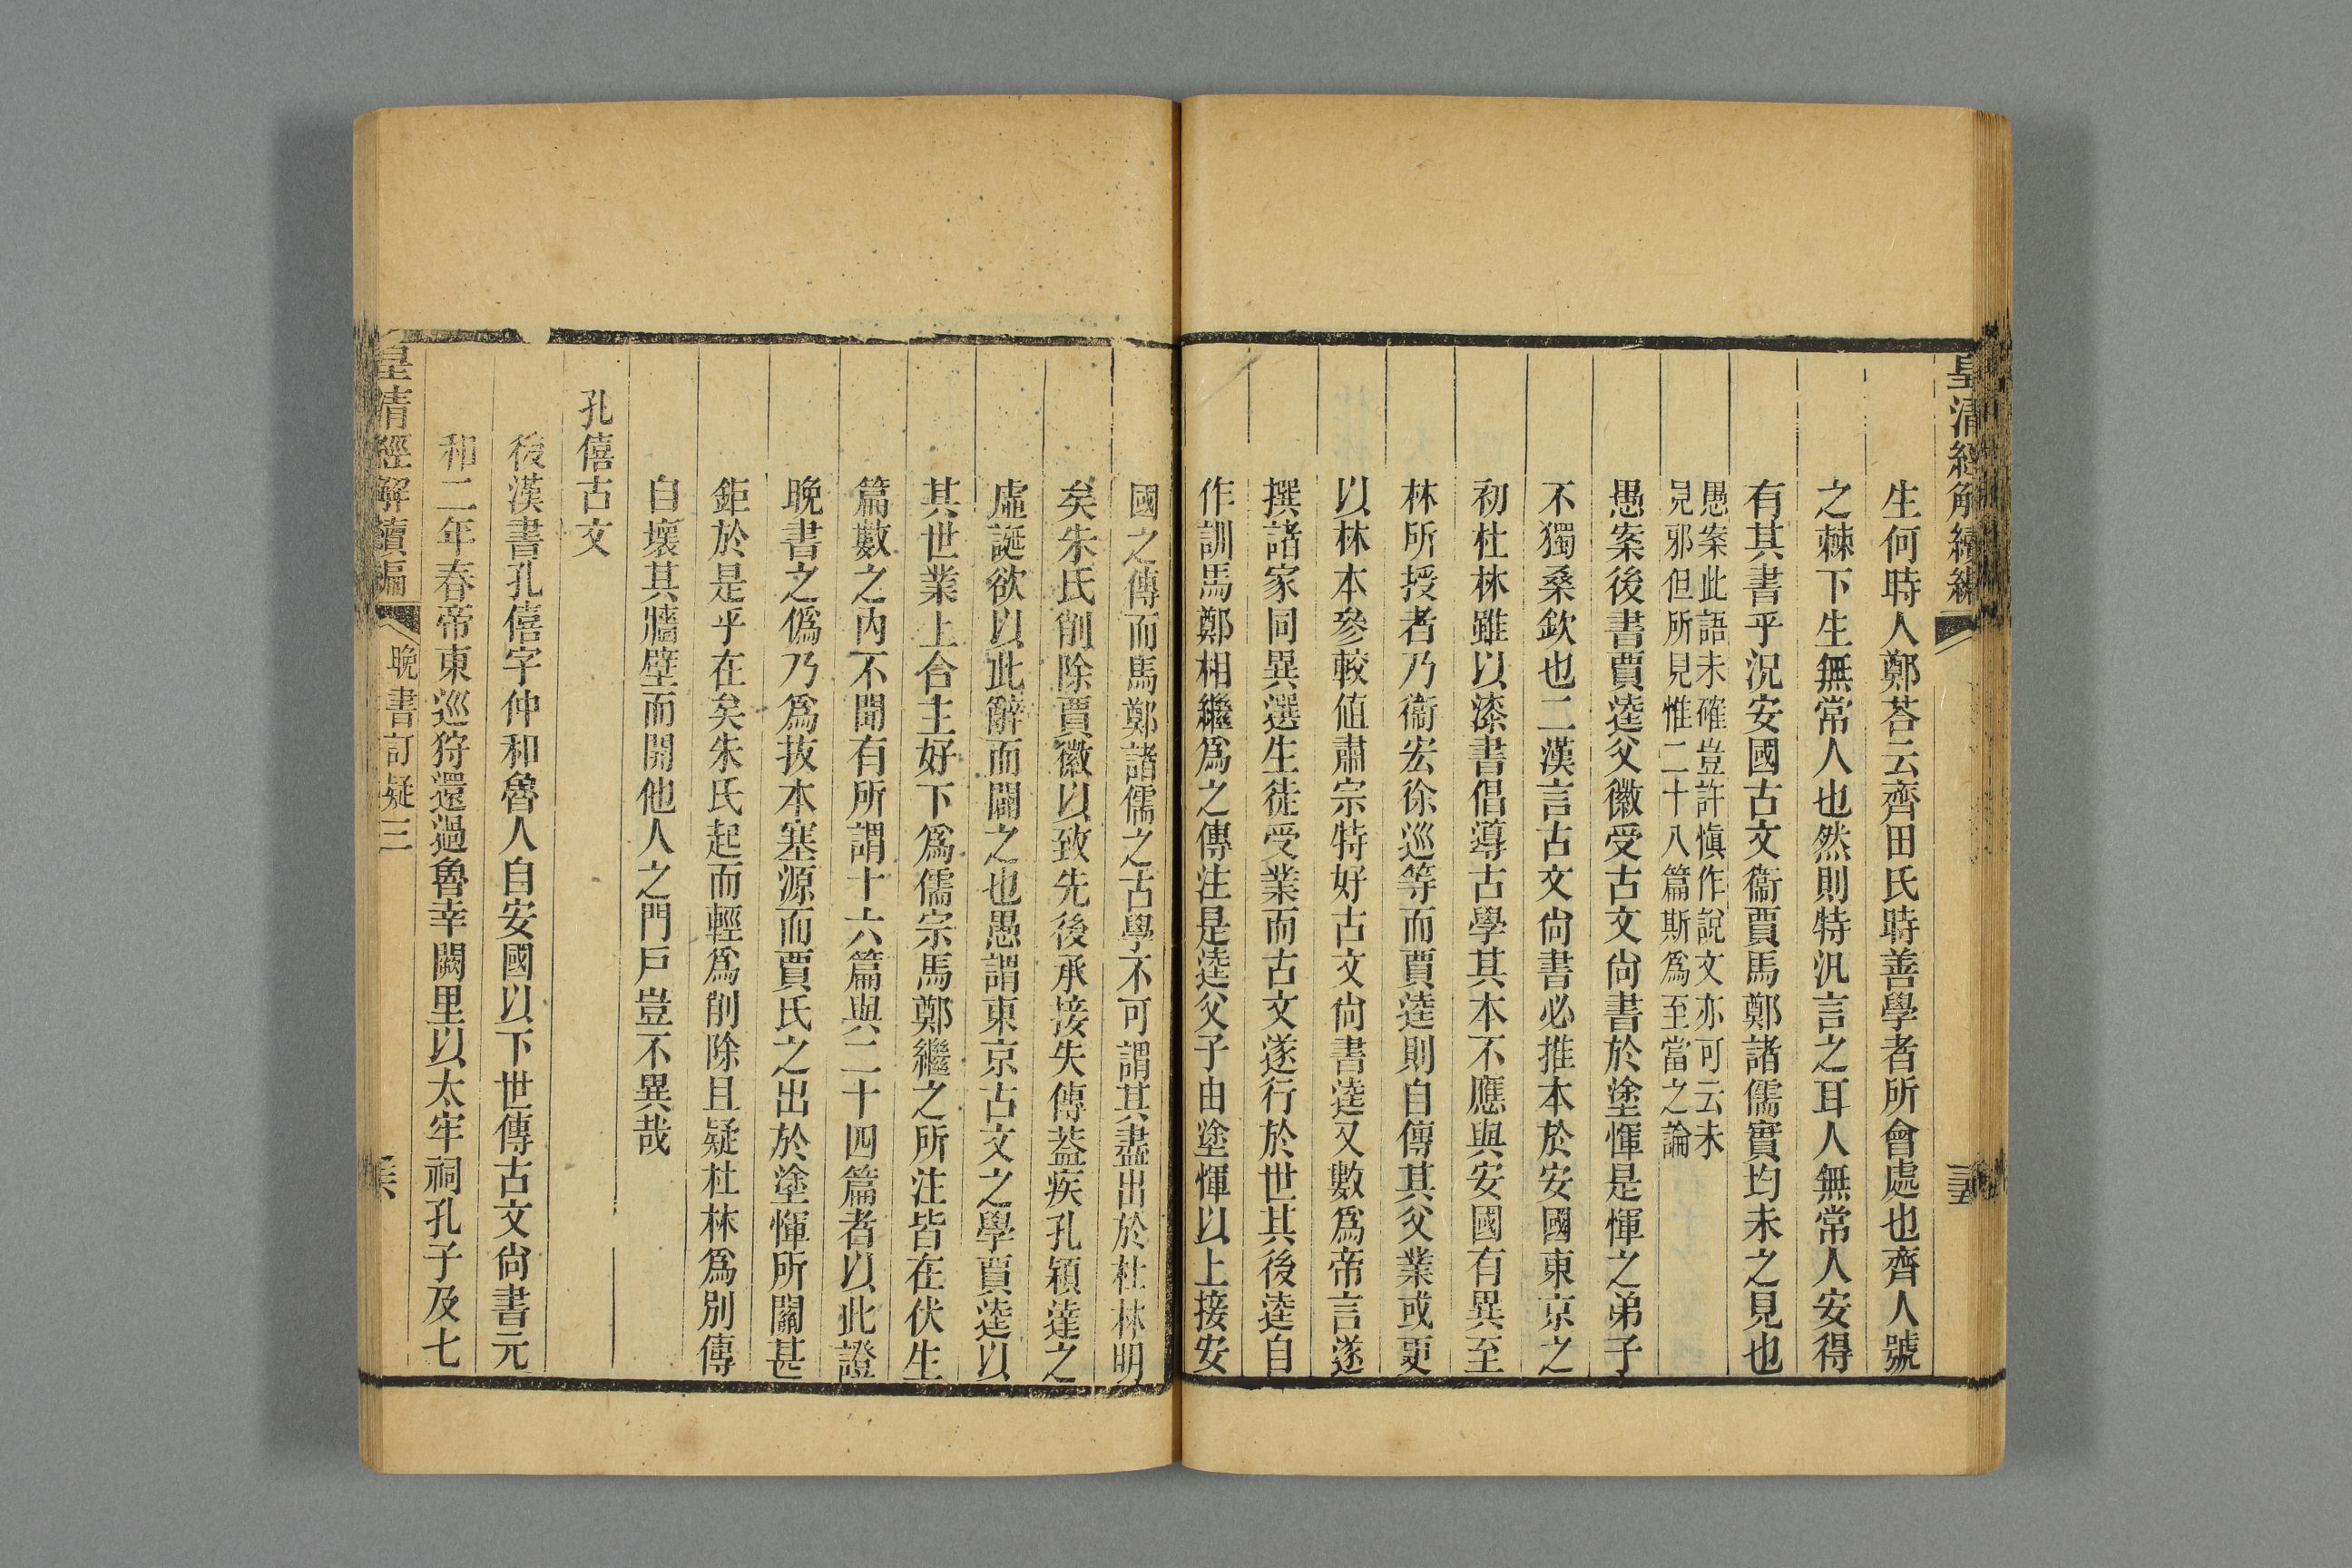 皇清經解續編
三五
生何時人鄭荅云齊田氏時善學者所會處也齊人號
之棘下生無常人也然則特汎言之耳人無常人安得
有其書乎況安國古文衞賈馬鄭諸儒實均未之見也
愚案此語未確豈許慎作說文亦可云未
見邪但所見惟二十八篇斯爲至當之論
愚案後書賈逵父徽受古文尙書於塗惲是惲之弟子
不獨桑欽也二漢言古文尙書必推本於安國東京之
初杜林雖以漆書倡導古學其本不應與安國有異至
林所授者乃衞宏徐巡等而賈逵則自傳其父業或更
以林本參較値肅宗特好古文尙書逵又數爲帝言遂
撰諸家同異選生徒受業而古文遂行於世其後逵自
作訓馬鄭相繼爲之傳注是逵父子由塗惲以上接安
國之傳而馬鄭諸儒之古學不可謂其盡出於杜林明
矣朱氏削除賈徽以致先後承接失傳葢疾孔穎達之
虛誕欲以此辭而闢之也愚謂東京古文之學賈逵以
其世業上合主好下爲儒宗馬鄭繼之所注皆在伏生
篇數之內不聞有所謂十六篇與二十四篇者以此證
晚書之僞乃爲拔本塞源而賈氏之出於塗惲所關甚
鉅於是乎在矣朱氏起而輕爲削除且疑杜林爲別傳
自壞其牆壁而開他人之門戸豈不異哉
孔僖古文
後漢書孔僖字仲和魯人自安國以下世傳古文尙書元
和二年春帝東巡狩還過魯幸闕里以太牢祠孔子及七
皇清經解續編
晚書訂疑三